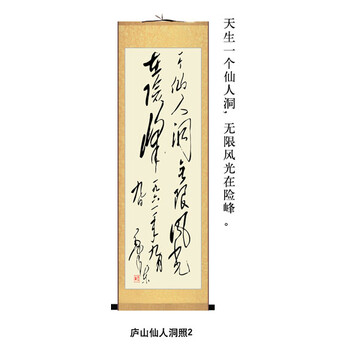 天生一个仙人洞，无限风光在险峰。
个仙人洞无限风光
在险峰
一九六一年九月
九日
庐山仙人洞照2